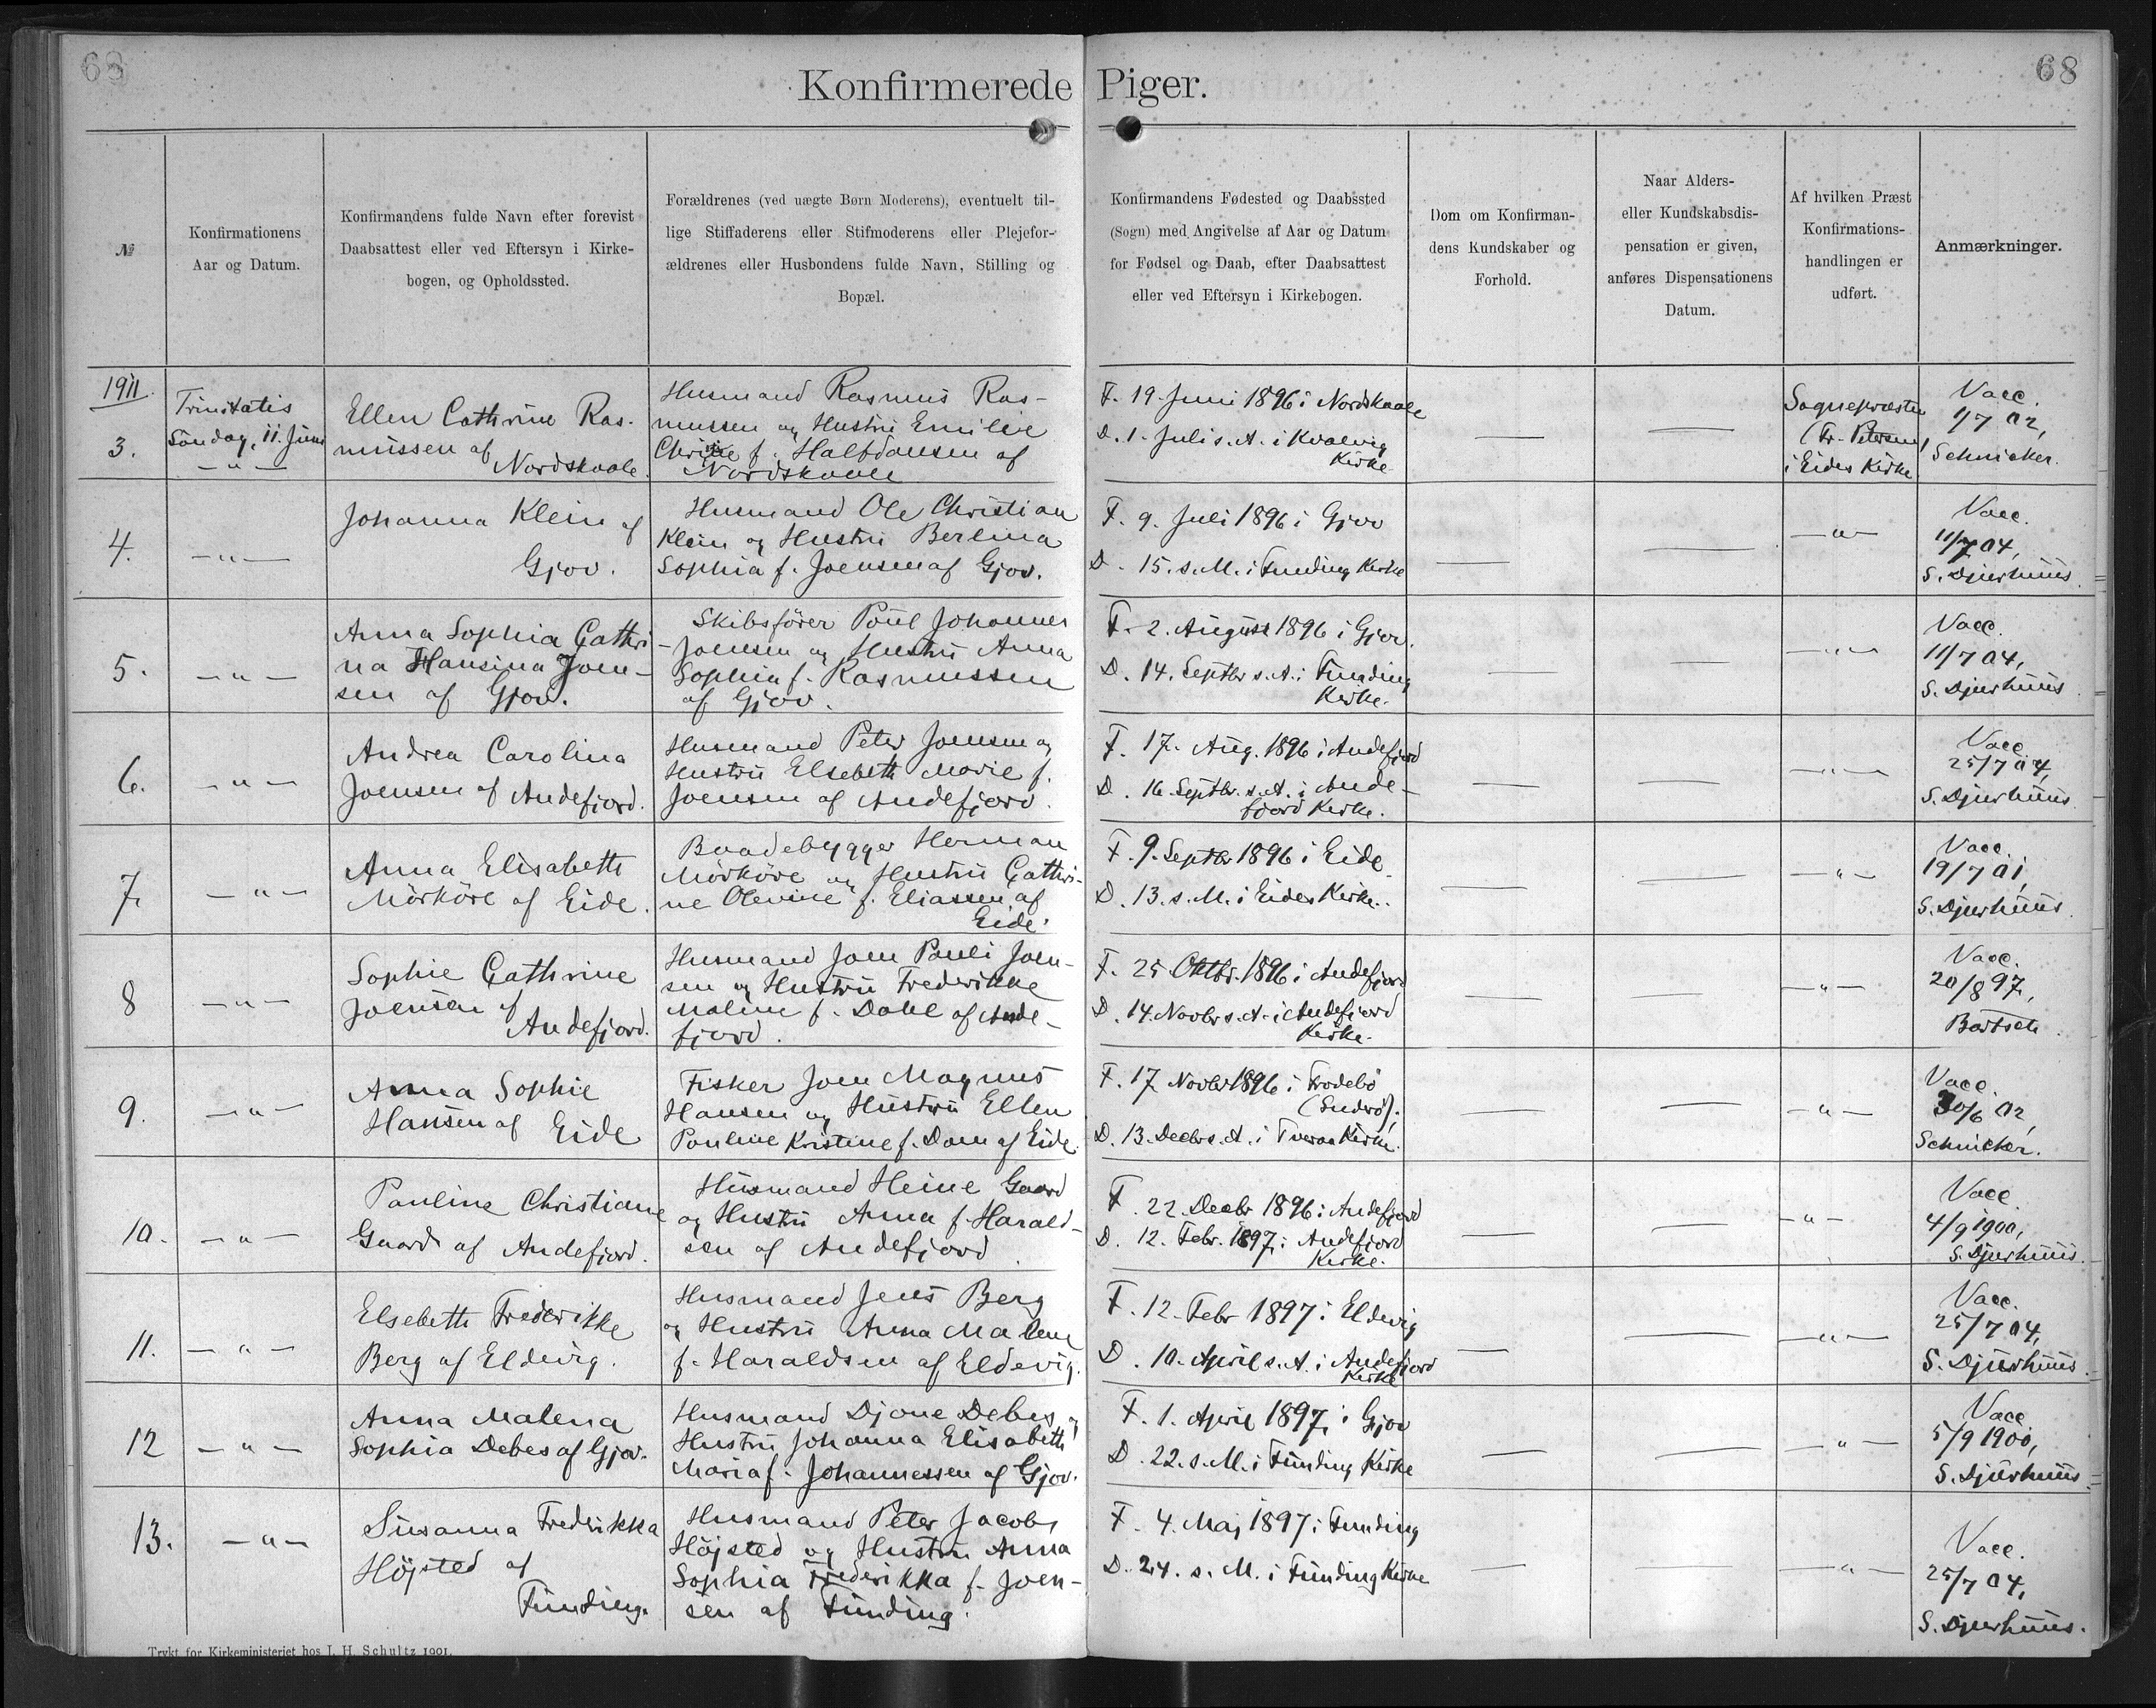 68
Konfirmerede Piger.
68
№
Konfirmationens
Aar og Datum.
Konfirmandens fulde Navn efter forevist
Daabsattest eller ved Eftersyn i Kirke-
bogen, og Opholdssted.
Forældrenes (ved uægte Børn Moderens), eventuelt til-
lige Stiffaderens eller Stifmoderens eller Plejefor-
ældrenes eller Husbondens fulde Navn, Stilling og
Bopæl.
Konfirmandens Fødested og Daabssted
(Sogn) med Angivelse af Aar og Datum
for Fødsel og Daab, efter Daabsattest
eller ved Eftersyn i Kirkebogen.
Dom om Konfirman-
dens Kundskaber og
Forhold.
Naar Alders-
eller Kundskabsdis-
pensation er given,
anføres Dispensationens
Datum.
Af hvilken Præst
Konfirmations-
handlingen er
udført.
Anmærkninger.
1911.
3.
Trinitatis
Söndag, 11. Juni
— " —
Ellen Cathrine Ras-
mussen af
Nordskaale.
Husmand Rasmus Ras-
mussen og Hustru Emilie
f. Halfdansen af
Nordskaale
F. 19. Juni 1896 i Nordskaale
D. 1. Juli s. A. i Kvalvig
Kirke
—
—
Sognepræsten
(Fr. Petersen)
i Eides Kirke
Vacc.
1/7 02,
Schnicker.
4.
— " —
Johanna Klein af
Gjov.
Husmand Ole Christian
Klein og Hustru Berlina
Sophia f. Joensen af Gjov.
F. 9. Juli 1896 i Gjov
D. 15. s. M. i Funding Kirke
—
—
— " —
Vacc.
11/7 04,
S. Djurhuus.
5.
— " —
Anna Sophia Cathri-
na Hansina Joen-
sen af Gjov.
Skibsfører Poul Johannes
Joensen og Hustru Anna
Sophia f. Rasmussen
af Gjov.
F. 2. August 1896 i Gjov.
D. 14. Septbr s. A. i Funding
Kirke.
—
—
— " —
Vacc.
11/7 04,
S. Djurhuus.
6.
— " —
Andrea Carolina
Joensen af Andefjord.
Husmand Peter Joensen og
Hustru Elsebeth Marie f.
Joensen af Andefjord.
F. 17. Aug. 1896 i Andefjord
D. 16. Septbr. s. A. i Ande-
fjord Kirke.
—
—
— " —
Vacc.
25/7 04,
S. Djurhuus.
7.
— " —
Anna Elisabeth
Mörköre af Eide.
Baadebygger Herman
Mörköre og Hustru Cathri-
ne Olevine f. Eliassen af
Eide.
F. 9. Septbr 1896 i Eide
D. 13. s. M. i Eides Kirke.
—
—
— " —
Vacc.
19/7 01,
S. Djurhuus.
8
— " —
Sophie Cathrine
Joensen af
Andefjord.
Husmand Joen Pauli Joen-
sen og Hustru Frederikke
Maline f. Dahl af Ande-
fjord.
F. 25 Oktbr. 1896 i Andefjord
D. 14. Novbr s. A. i Andefjord
Kirke.
—
—
— " —
Vacc.
20/8 97,
Bartsch.
9.
— " —
Anna Sophie
Hansen af Eide
Fisker Joen Magnus
Hansen og Hustru Ellen
Pauline Kristine f. Dam af Eide.
F. 17 Novbr 1896 i Frodebö
(Suderö),
D. 13. Decbr s. A. i Tveraa Kirke.
—
—
— " —
Vacc.
30/6 02,
Schnicker.
10.
— " —
Pauline Christiane
Gaard af Andefjord.
Husmand Heine Gaard
og Hustru Anna f. Harald-
sen af Andefjord.
F. 22. Decbr 1896 i Andefjord
D. 12. Febr. 1897 i Andefjord
Kirke.
—
—
— " —
Vacc.
4/9 1900,
S. Djurhuus.
11.
— " —
Elsebeth Frederikke
Berg af Eldevig.
Husmand Jens Berg
og Hustru Anna Malene
f. Haraldsen af Eldevig.
F. 12. Febr 1897 i Eldevig
D. 10. April s. A. i Andefjord
Kirke
—
—
— " —
Vacc.
25/7 04,
S. Djurhuus.
12
— " —
Anna Malena
Sophia Debes af Gjov.
Husmand Djone Debes og
Hustru Johanna Elisabeth
Maria f. Johannessen af Gjov.
F. 1. April 1897 i Gjov
D. 22. s. M. i Funding Kirke
—
—
— " —
Vacc.
5/9 1900,
S. Djurhuus.
13.
— " —
Susanna Frederikka
Höjsted af
Funding.
Husmand Peter Jacob
Höjsted og Hustru Anna
Sophia Frederikka f. Joen-
sen af Funding.
F. 4. Maj 1897 i Funding
D. 24. s. M. i Funding Kirke
—
—
— " —
Vacc.
25/7 04,
S. Djurhuus.
Trykt for Kirkeministeriet hos I. H. Schultz 1901.